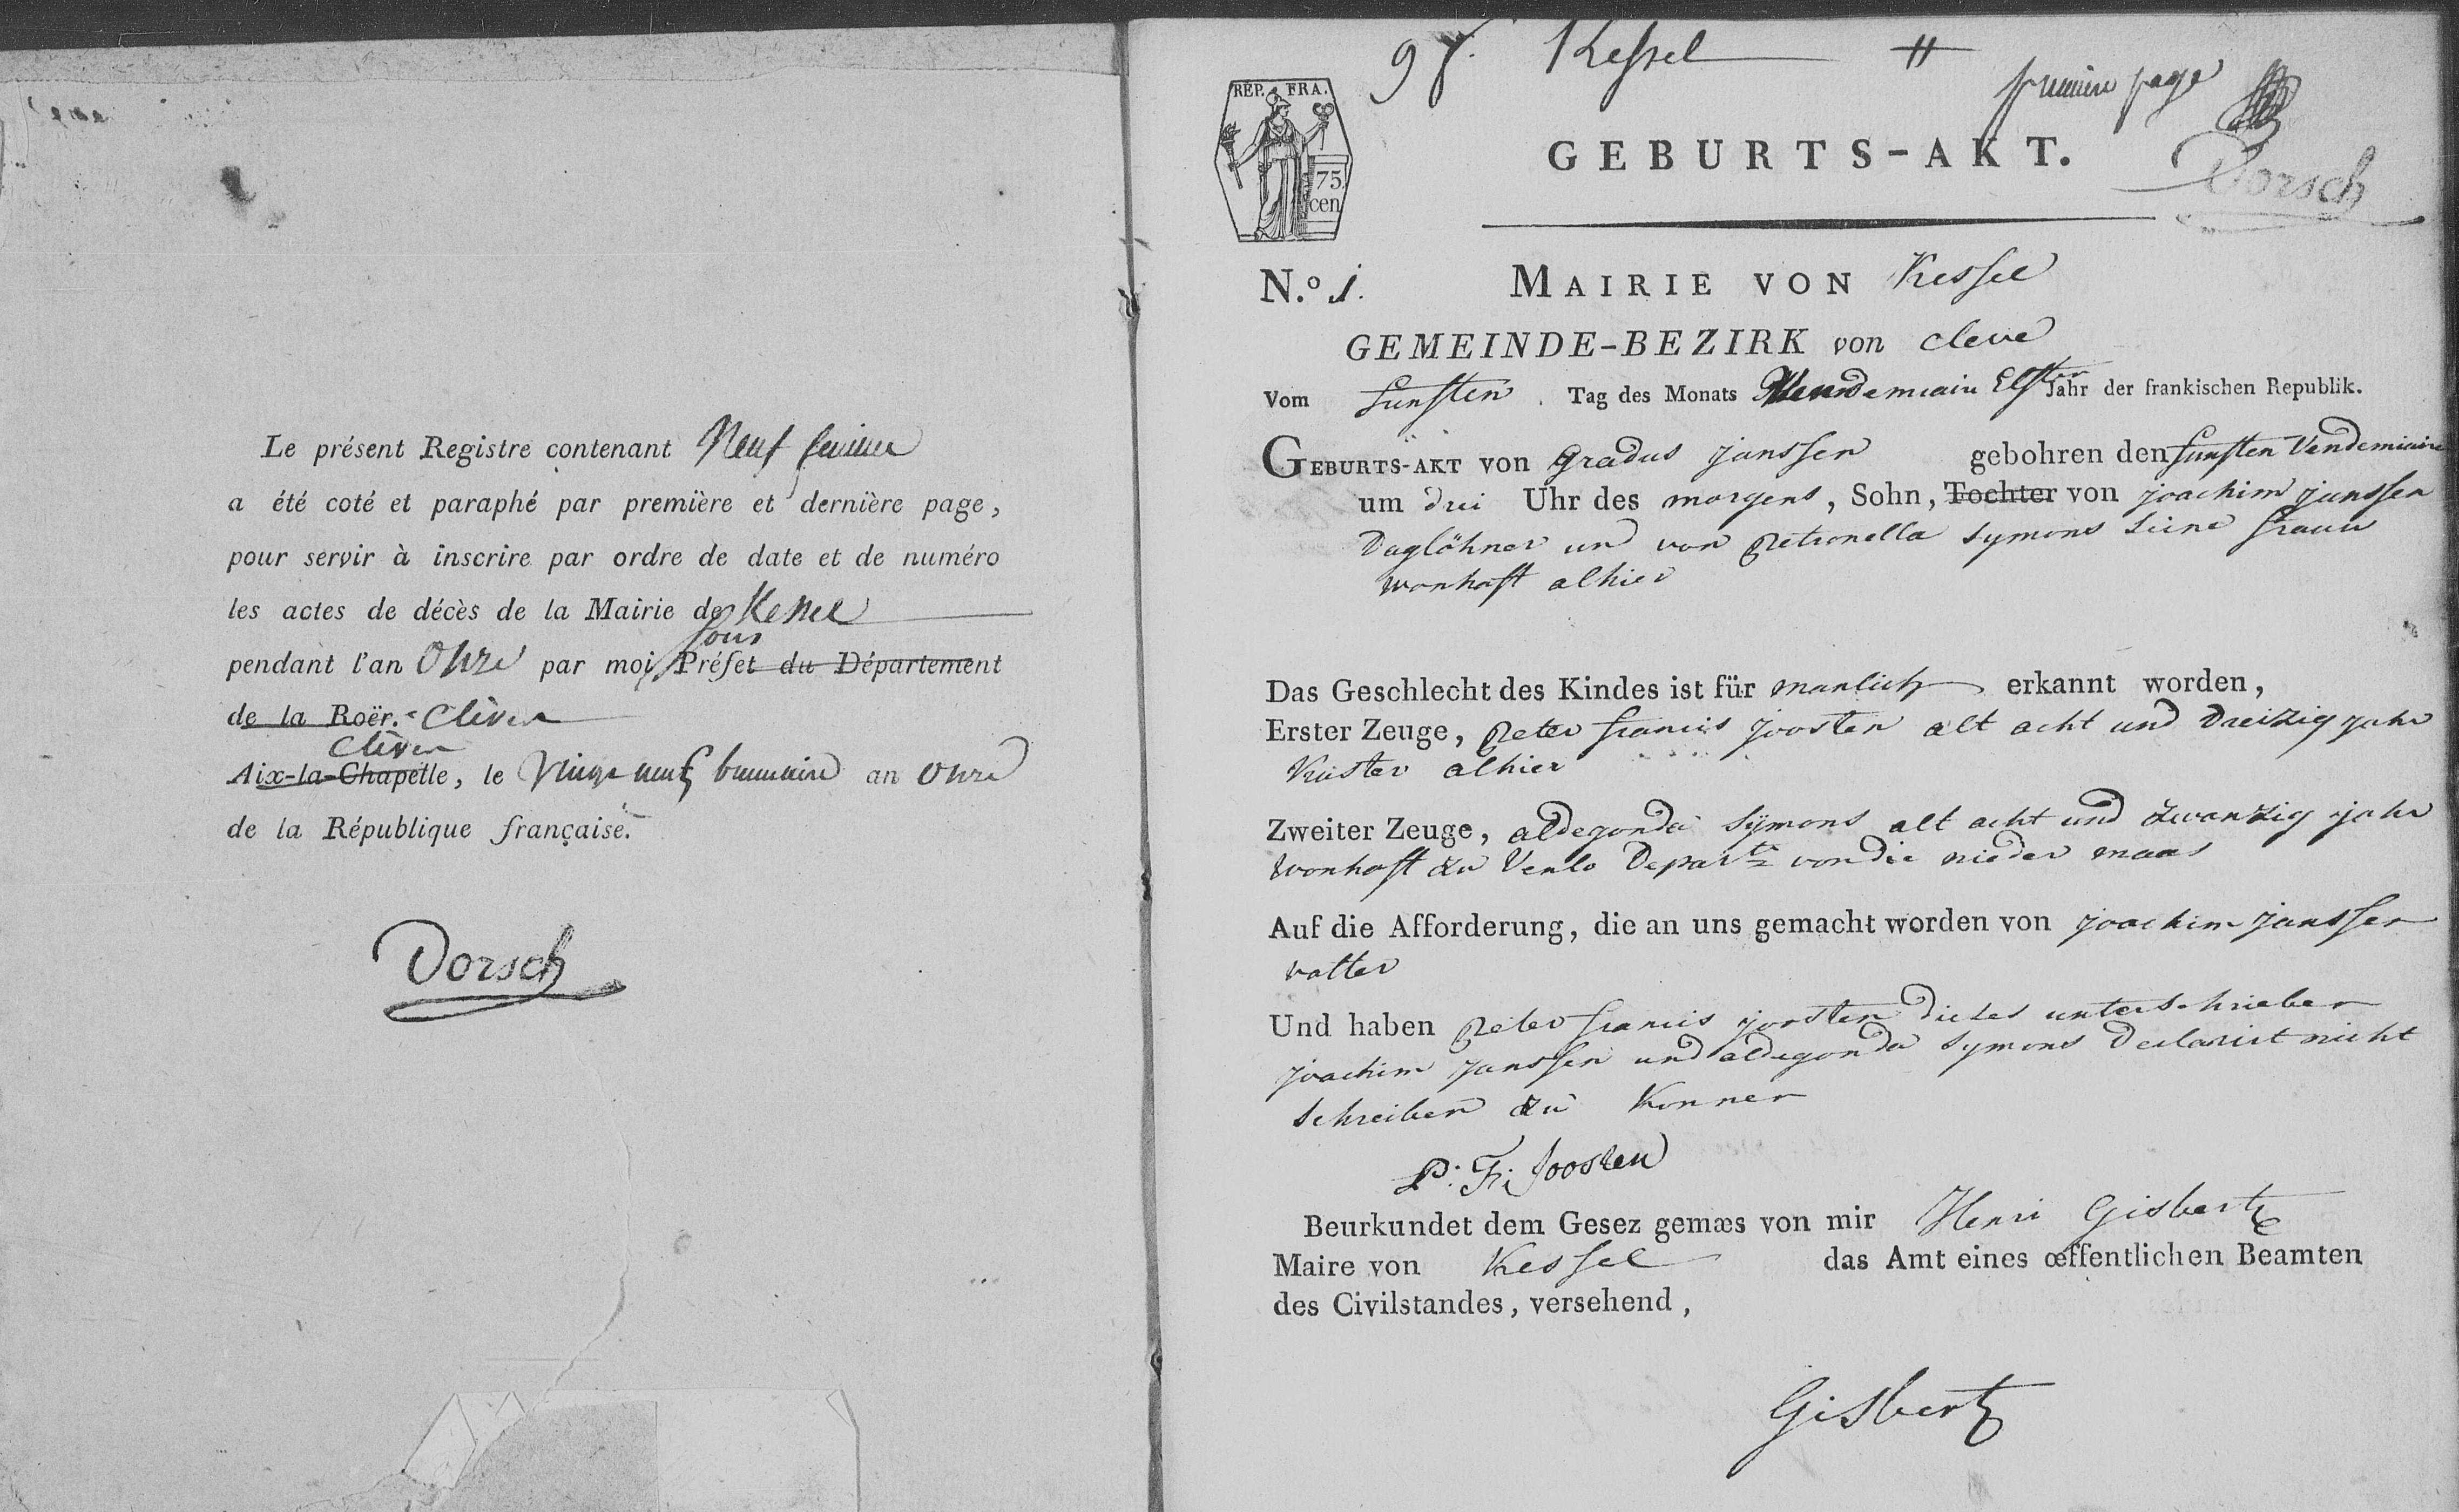 Le présent Registre contenant Neuf feuilles
a été coté et paraphé par première et dernière page,
pour servir à inscrire par ordre de date et de numéro
les actes de décès de la Mairie de Kessel
sous
pendant l'an Onze par moi Préfet du Département
de la Roër. Clèves
Clèves
Aix-la-Chapelle, le Vingt neuf brumaire an Onze
de la République française.
Dorsch
9 f. Kessel
premiere page
Dorsch
RÉP. FRA.
75
cen
GEBURTS-AKT.
N.º 1. MAIRIE VON Kessel
GEMEINDE-BEZIRK von Cleve
Vom funften Tag des Monats Vendemiair Elfter Jahr der frankischen Republik.
GEBURTS-AKT von Gradus Janssen gebohren den funften Vendemiaire
um drei Uhr des morgens, Sohn, Tochter von joachim janssen
Daglöhner und von Petronella Symons Seine frauw
wonhaft alhier
Das Geschlecht des Kindes ist für manlich erkannt worden,
Erster Zeuge, Peter francis joosten alt acht und dreizig jahr
Küster alhier
Zweiter Zeuge, aldegonda Sÿmons alt acht und zwanzig jahr
Wonhaft zu Venlo Depart. von die nieder maas
Auf die Afforderung, die an uns gemacht worden von joachim janssen
vatter
Und haben Peter francis joosten dieses unterschrieben
joachim janssen und aldegonda Symons declarirt nicht
schreiben zu konnen
P: F: Joosten
Beurkundet dem Gesez gemæs von mir Henri Gisbertz
Maire von Kessel das Amt eines œffentlichen Beamten
des Civilstandes, versehend,
Gisbertz